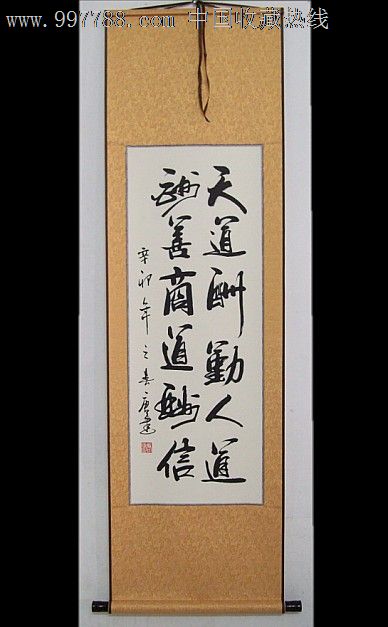 www.997788.com 中国收藏热线
天道酬勤人道
酬善商道酬信
辛卯年之春